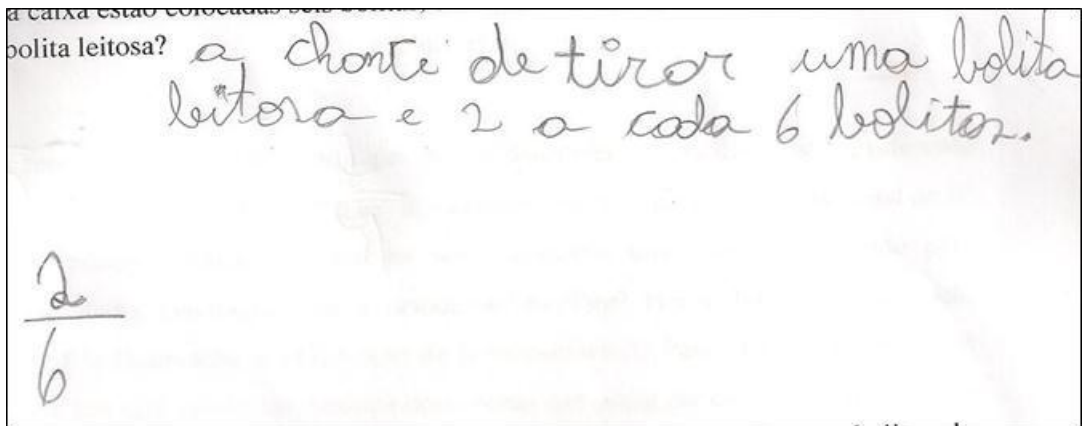 a caixa estão colocadas seis
bolita leitosa? a chonte de tirar uma bolita
leitosa e 2 a cada 6 bolitas.
2
6